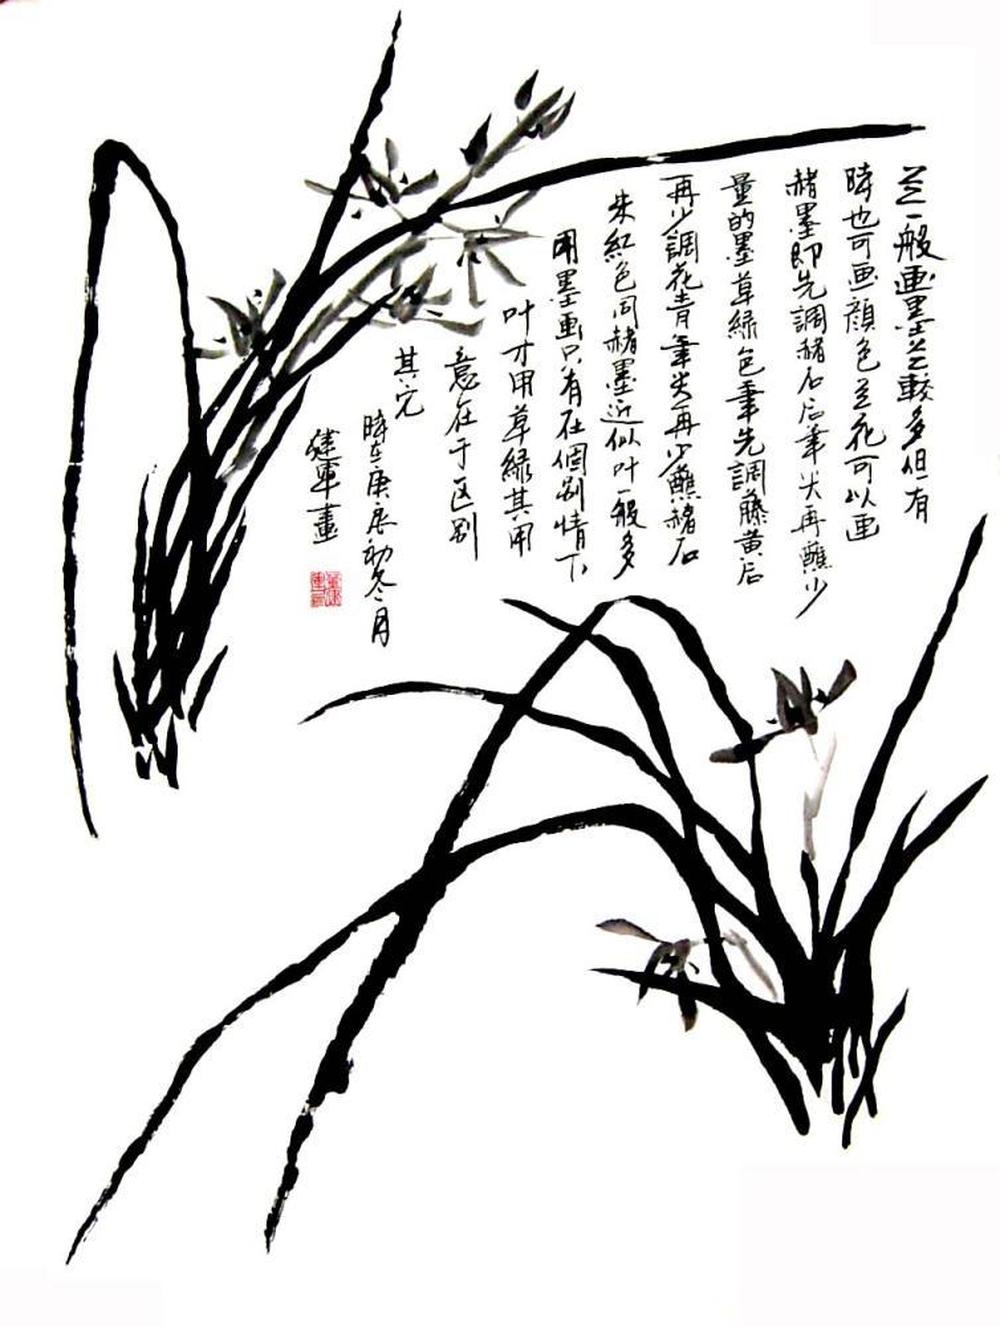 兰一般画墨兰較多但有
時也可画顔色兰花可以画
赭墨即先調赭石后笔尖再蘸少
量的墨草緑色筆先調藤黄后
再少調花青筆尖再少蘸赭石
朱紅色同赭墨近似叶一般多
用墨画只有在個别情下
叶才用草緑其用
意在于区别
其它
時在庚辰初冬月
建軍畫